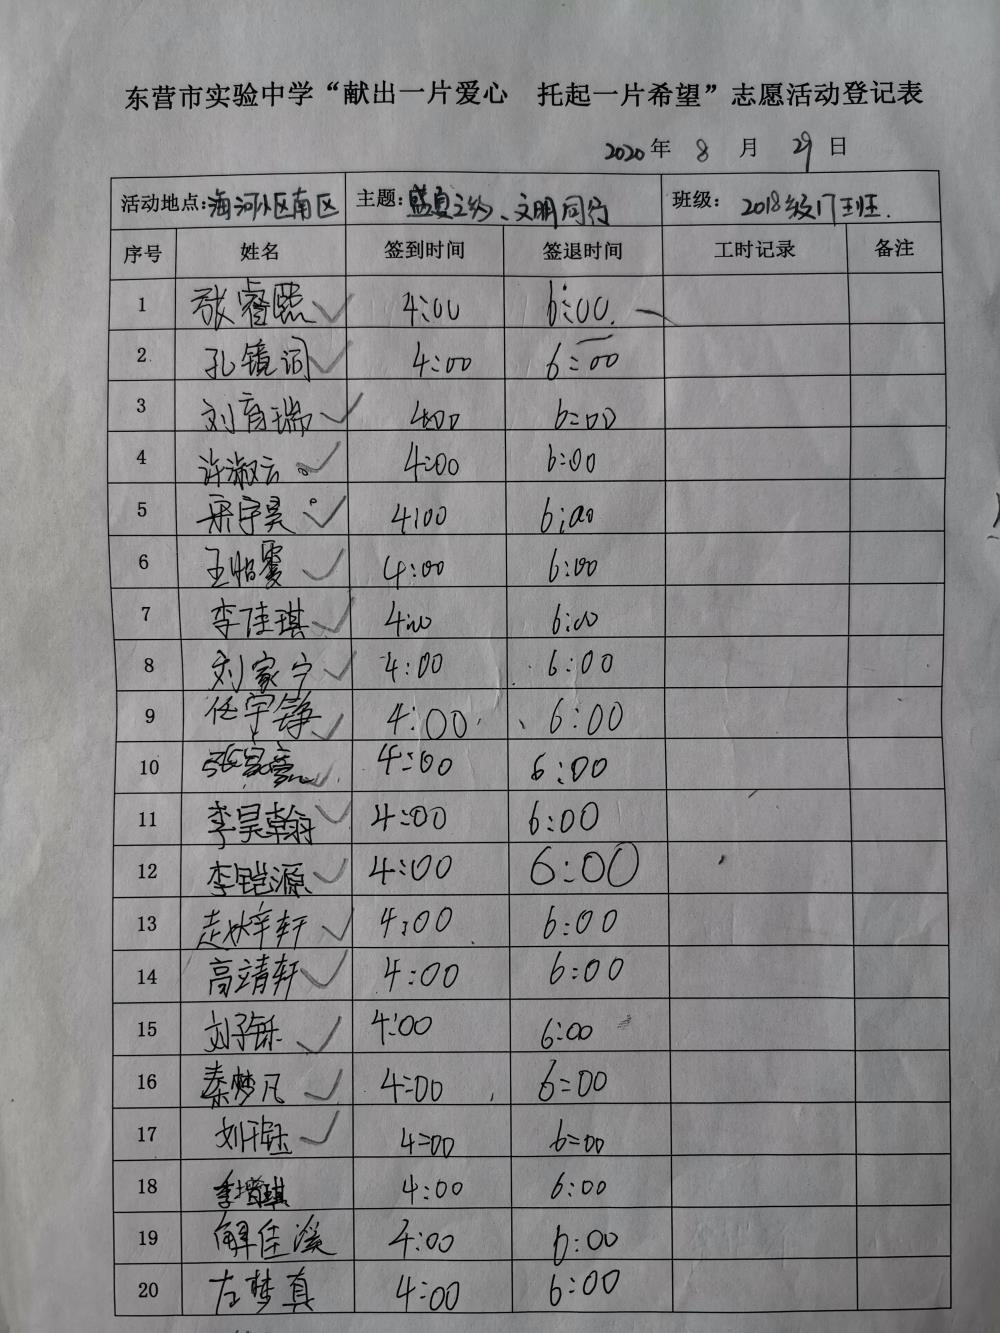 东营市实验中学“献出一片爱心　托起一片希望”志愿活动登记表
2020年 8 月 29日
活动地点:海河小区南区 主题:盛夏之约、文明同行 班级: 2018级17班.
序号 姓名 签到时间 签退时间 工时记录 备注
1 张睿熙 4:00 6:00.
2 孔镜词 4:00 6:00
3 刘育瑞 4:00 6:00
4 许淑云 4:00 6:00
5 宋宇昊 4:00 6:00
6 王怡雯 4:00 6:00
7 李佳琪 4:00 6:00
8 刘家宁 4:00 6:00
9 任宇铮 4:00 6:00
10 张家豪 4:00 6:00
11 李昊翰 4:00 6:00
12 李铠源 4:00 6:00
13 赵梓轩 4:00 6:00
14 高靖轩 4:00 6:00
15 刘子铄 4:00 6:00
16 秦梦凡 4:00 6:00
17 刘于钰 4:00 6:00
18 4:00 6:00
19 解佳溪 4:00 6:00
20 左梦真 4:00 6:00